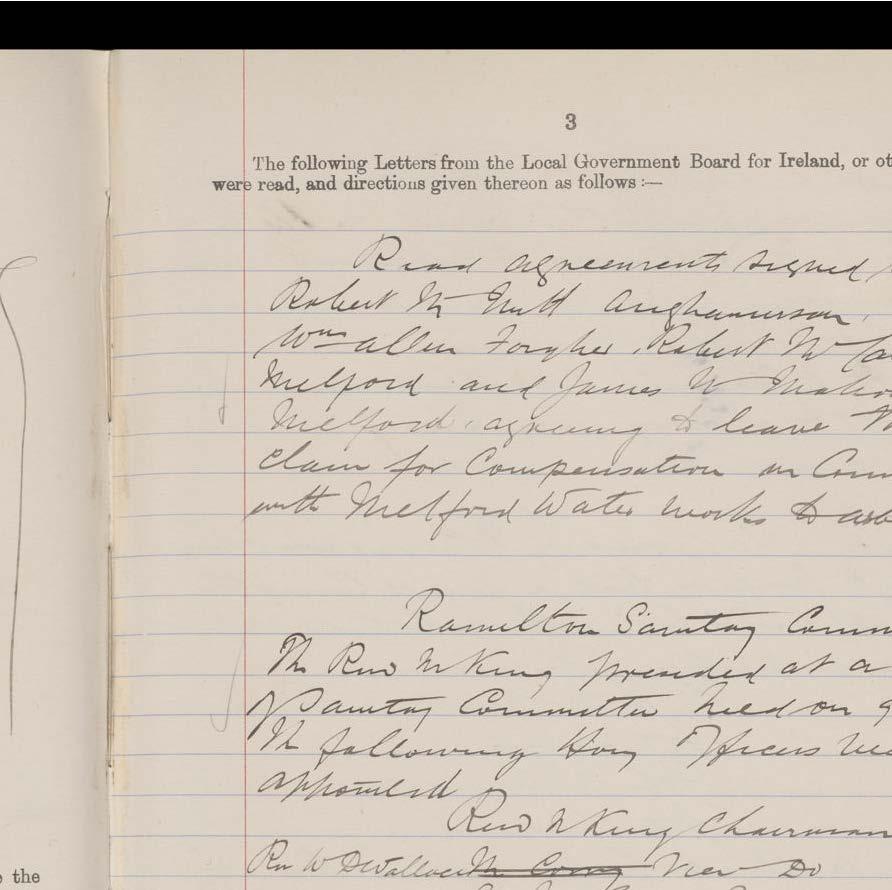 3
The following Letters from the Local Government Board for Ireland, or ot
were read, and directions given thereon as follows :—
Read agreements signed
Robert Mc Nutt Aughamurson,
Wm Allen Forgher, Robert Mc
Milford and James W
Milford, agreeing to leave
Claim for Compensation in Conn
with Milford Water works to arb
Ramelton Sanitary Comm
The Revd Mr King presided at a
Sanitary Committee held on 9
The following Hony Officers we
appointed
Revd Mr King Chairman
Rev W D Wallace Vice Do
the